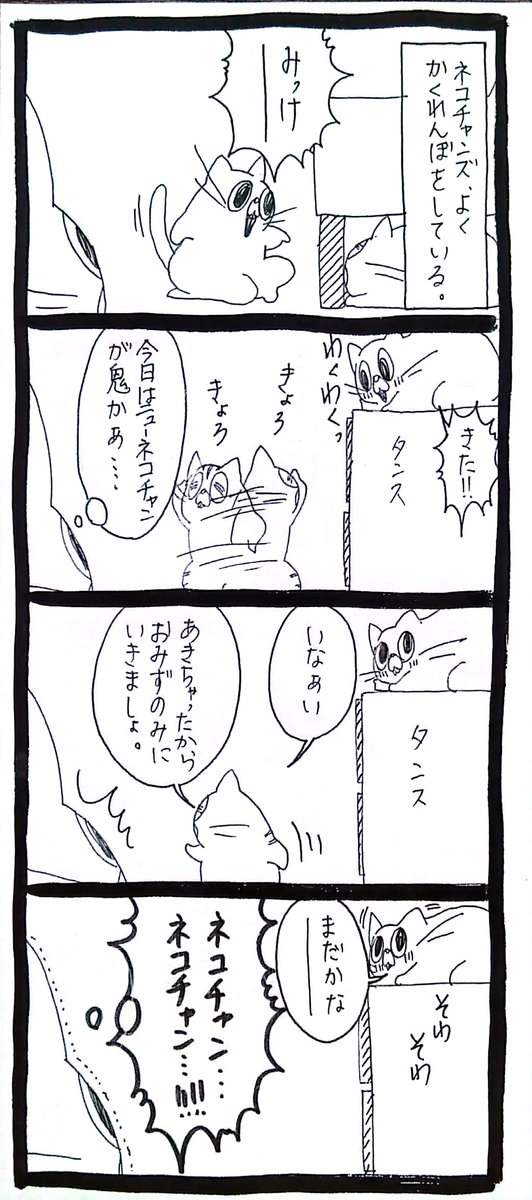 ネコチャンズ、よく
かくれんぼをしている。
みっけ
きた!!
わくわくっ
タンス
きょろ
きょろ
今日はニューネコチャン
が鬼かぁ…
いなぁい
あきちゃったから
おみずのみに
いきましょ。
タンス
まだかなー
そわ
そわ
ネコチャン…
ネコチャン…!!!